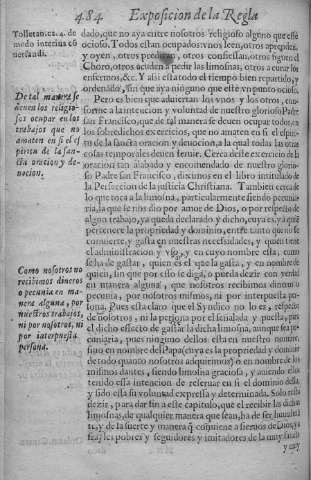 484 Exposicion de la Regla
Tolletan. ca. 4. de
modo interius cõ
uersandi.
De tal manera se
deuen los religio-
sos ocupar en los
trabajos que no
amaten en si el es
piritu de la san-
ta oracion y de-
uocion.
Como nosotros no
recibimos dineros
o pecunia en ma-
nera alguna, por
nuestros trabajos,
ni por nosotros, ni
por interpuesta
persona.
dado, que no aya entre nosotros religioso alguno que este
ocioso. Todos estan ocupados: vnos leen, otros
y oyen, otros predican, otros confiessan, otros siguen el
Choro, otros acuden a pedir las limosnas, otros a curar los
enfermos, &c. Y assi esta todo el tiempo bien repartido, y
ordenado, sin que aya ninguno que este vn punto ocioso.
Pero es bien que aduiertan los vnos y los otros, con-
forme a la intencion y voluntad de nuestro glorioso Padre
san Francisco, que de tal manera se deuen ocupar todos en
los sobredichos exercicios, que no amaten en si el espiri-
tu de la sancta oracion y deuocion, a la qual todas las otras
cosas temporales deuen seruir. Cerca deste exercicio de la
oracion tan alabado y encomendado de nuestro glorio-
so Padre san Francisco, diximos en el libro intitulado de
la Perfeccion de la justicia Christiana. Tambien cerca de
lo que toca a la limosna, particularmente siendo pecunia-
ria, la que se nos dio por amor de Dios, o por respecto de
algun trabajo, ya queda declarado y dicho, cuya es, y a qué
pertenece la propriedad y dominio, entre tanto que no se
conuierte, y gasta en nuestras necesidades, y quien tiene
el administracion y vso, y en cuyo nombre esta, como
se ha de gastar, quien es el que la gasta, y en nombre de
quien, sin que por esto se diga, o pueda dezir con verdad
en manera alguna, que nosotros recibimos dineros o
pecunia, por nosotros mismos, ni por interpuesta per-
sona. Pues esta claro que el Syndico no lo es, respecto
de nosotros, ni la persona por el señalada y puesta, para
el dicho effecto de gastar la dicha limosna, aunque sea pe-
cuniaria, pues ninguno dellos esta en nuestro nombre,
sino en nombre del Papa (cuya es la propriedad y dominio
de todo quanto nosotros adquirimos) o en nombre de los
mismos dantes, siendo limosna gracioso, y auiendo ellos
tenido essa intencion de reseruar en si el dominio della,
y sido essa su voluntad expressa y determinada. Solo resta
dezir, para dar fin a este capitulo, que el recibir las dichas
limosnas, de qualquier manera que sean, ha de ser humilmẽ
te, y de la suerte y manera que conuiene a sieruos de Dios, y a
frayles pobres y seguidores y imitadores de la muy sancta
y muy